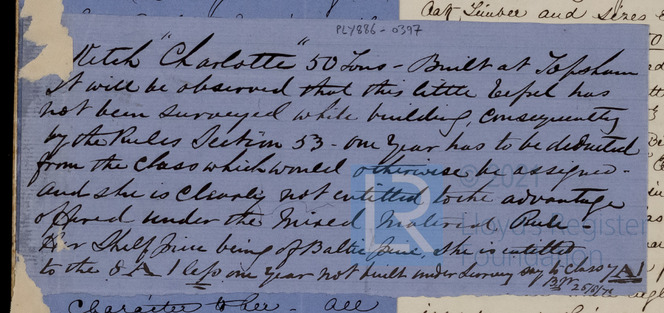 Oak Timber and sizes
PLY886-0397
Ketch "Charlotte" 50 Tons - Built at Topsham
It will be observed that this little Vessel has
not been surveyed while building, consequently
by the Rules Section 53 - one year has to be deducted
from the Class which would otherwise be assigned -
and she is clearly not entitled to the advantage
offered under the Mixed Material Rule -
Her Shelf being of Baltic she is entitled
to the 8 A 1 less one year not built under Survey say to class 7 A1
25/6/72
Character to her - all
© 2021
LR
Lloyd's Register
Foundation